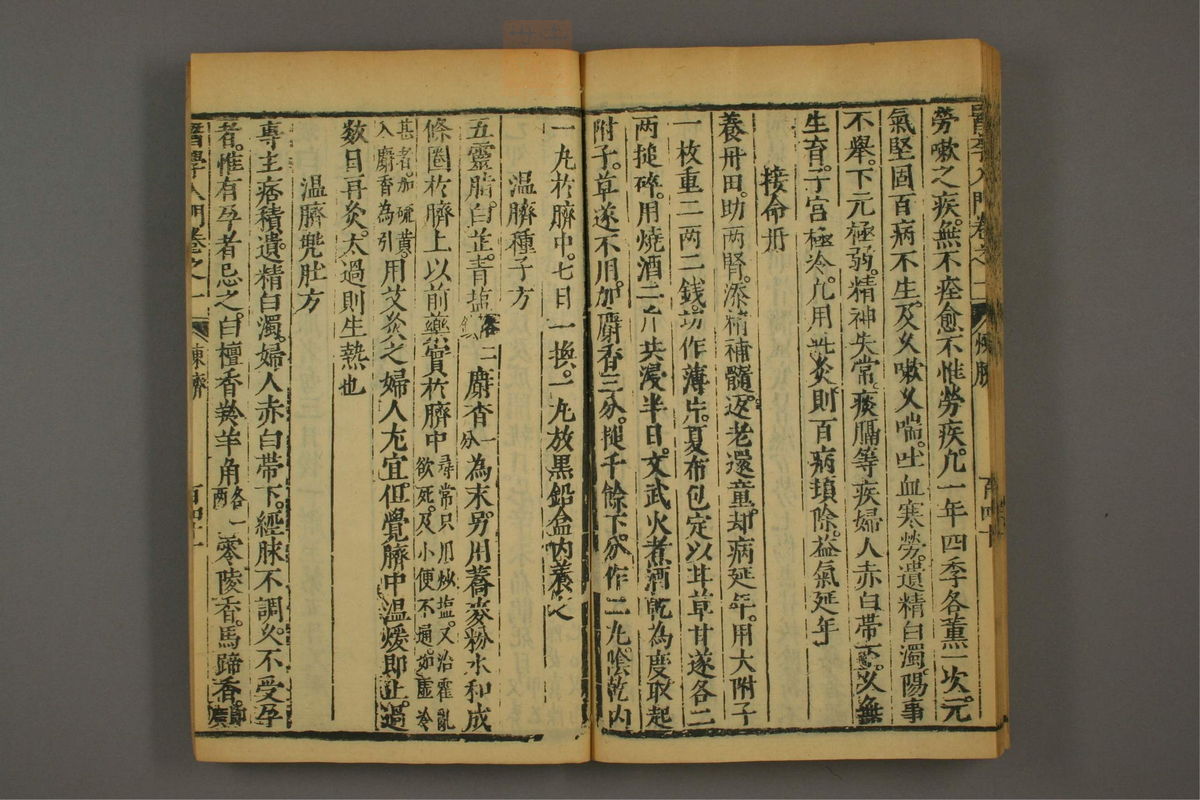 醫學入門卷之一 煉臍 百四十
勞嗽之疾。無不痊愈不惟勞疾。凢一年四季各薰一次。元
氣堅固百病不生。及久嗽久喘。吐血寒勞。遺精白濁。陽事
不舉。下元極弱。精神失常。痰膈等疾婦人赤白帶下。久無
生育。子宮極冷。凢用此灸則百病頓除。益氣延年
接命丹
養丹田。助两腎。添精補髓。返老還童。却病延年。用大附子
一枚重二两二錢。切作薄片。夏布包定以甘草甘遂各二
两搥碎。用燒酒二斤共浸半日。文武火煮酒乾為度取起
附子。草遂不用。加麝香三分。搥千餘下。分作二丸。陰乾内
一丸於臍中。七日一換。一丸放黑鉛盒内養之
温臍種子方
五靈脂。白芷。青塩各二錢麝香一分為末。另用蕎麥粉水和成
條圈於臍上以前藥實於臍中尋常只用炒塩。又治霍亂欲死。及小便不通。如虛冷
甚者。加硫黄。入麝香為引。用艾灸之婦人尤宜。但覺臍中温煖即止。過
數日再灸。太過則生熱也
温臍兜肚方
專主痞積。遺精白濁。婦人赤白帶下。經脉不調。久不受孕
者。惟有孕者忌之。白檀香羚羊角各一两零陵香。馬蹄香。
醫學入門卷之一 煉臍 百四十一